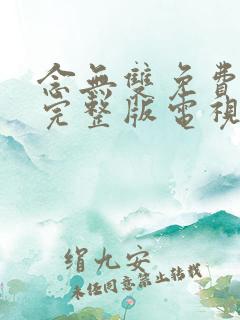 念無雙免費
完整版電視
絹九安
未任同意禁止转载